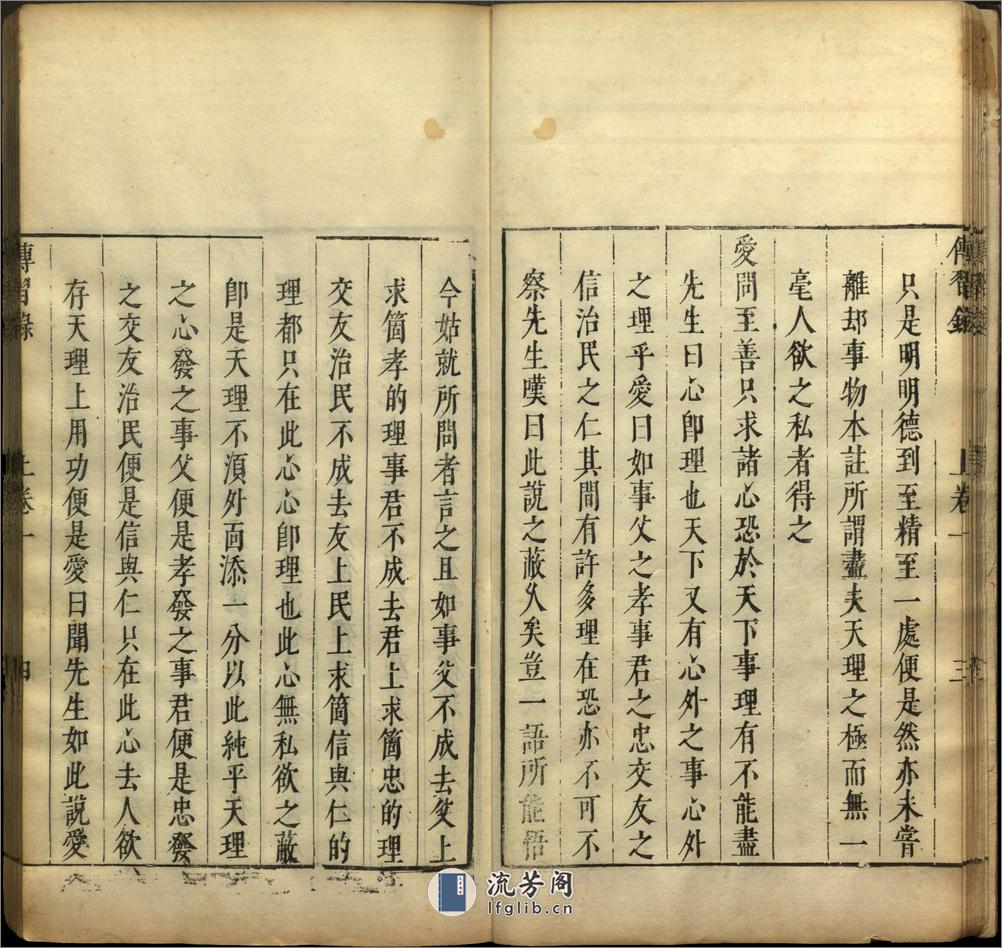 傳習錄 上卷一 三
只是明明德到至精至一處便是然亦未嘗
離却事物本註所謂盡夫天理之極而無一
毫人欲之私者得之
愛問至善只求諸心恐於天下事理有不能盡
先生曰心卽理也天下又有心外之事心外
之理乎愛曰如事父之孝事君之忠交友之
信治民之仁其間有許多理在恐亦不可不
察先生嘆曰此說之蔽久矣豈一語所能悟
今姑就所問者言之且如事父不成去父上
求箇孝的理事君不成去君上求箇忠的理
交友治民不成去友上民上求箇信與仁的
理都只在此心心卽理也此心無私欲之蔽
卽是天理不須外面添一分以此純乎天理
之心發之事父便是孝發之事君便是忠發
之交友治民便是信與仁只在此心去人欲
存天理上用功便是愛曰聞先生如此說愛
傳習錄 上卷一 四
流芳阁
lfglib.cn